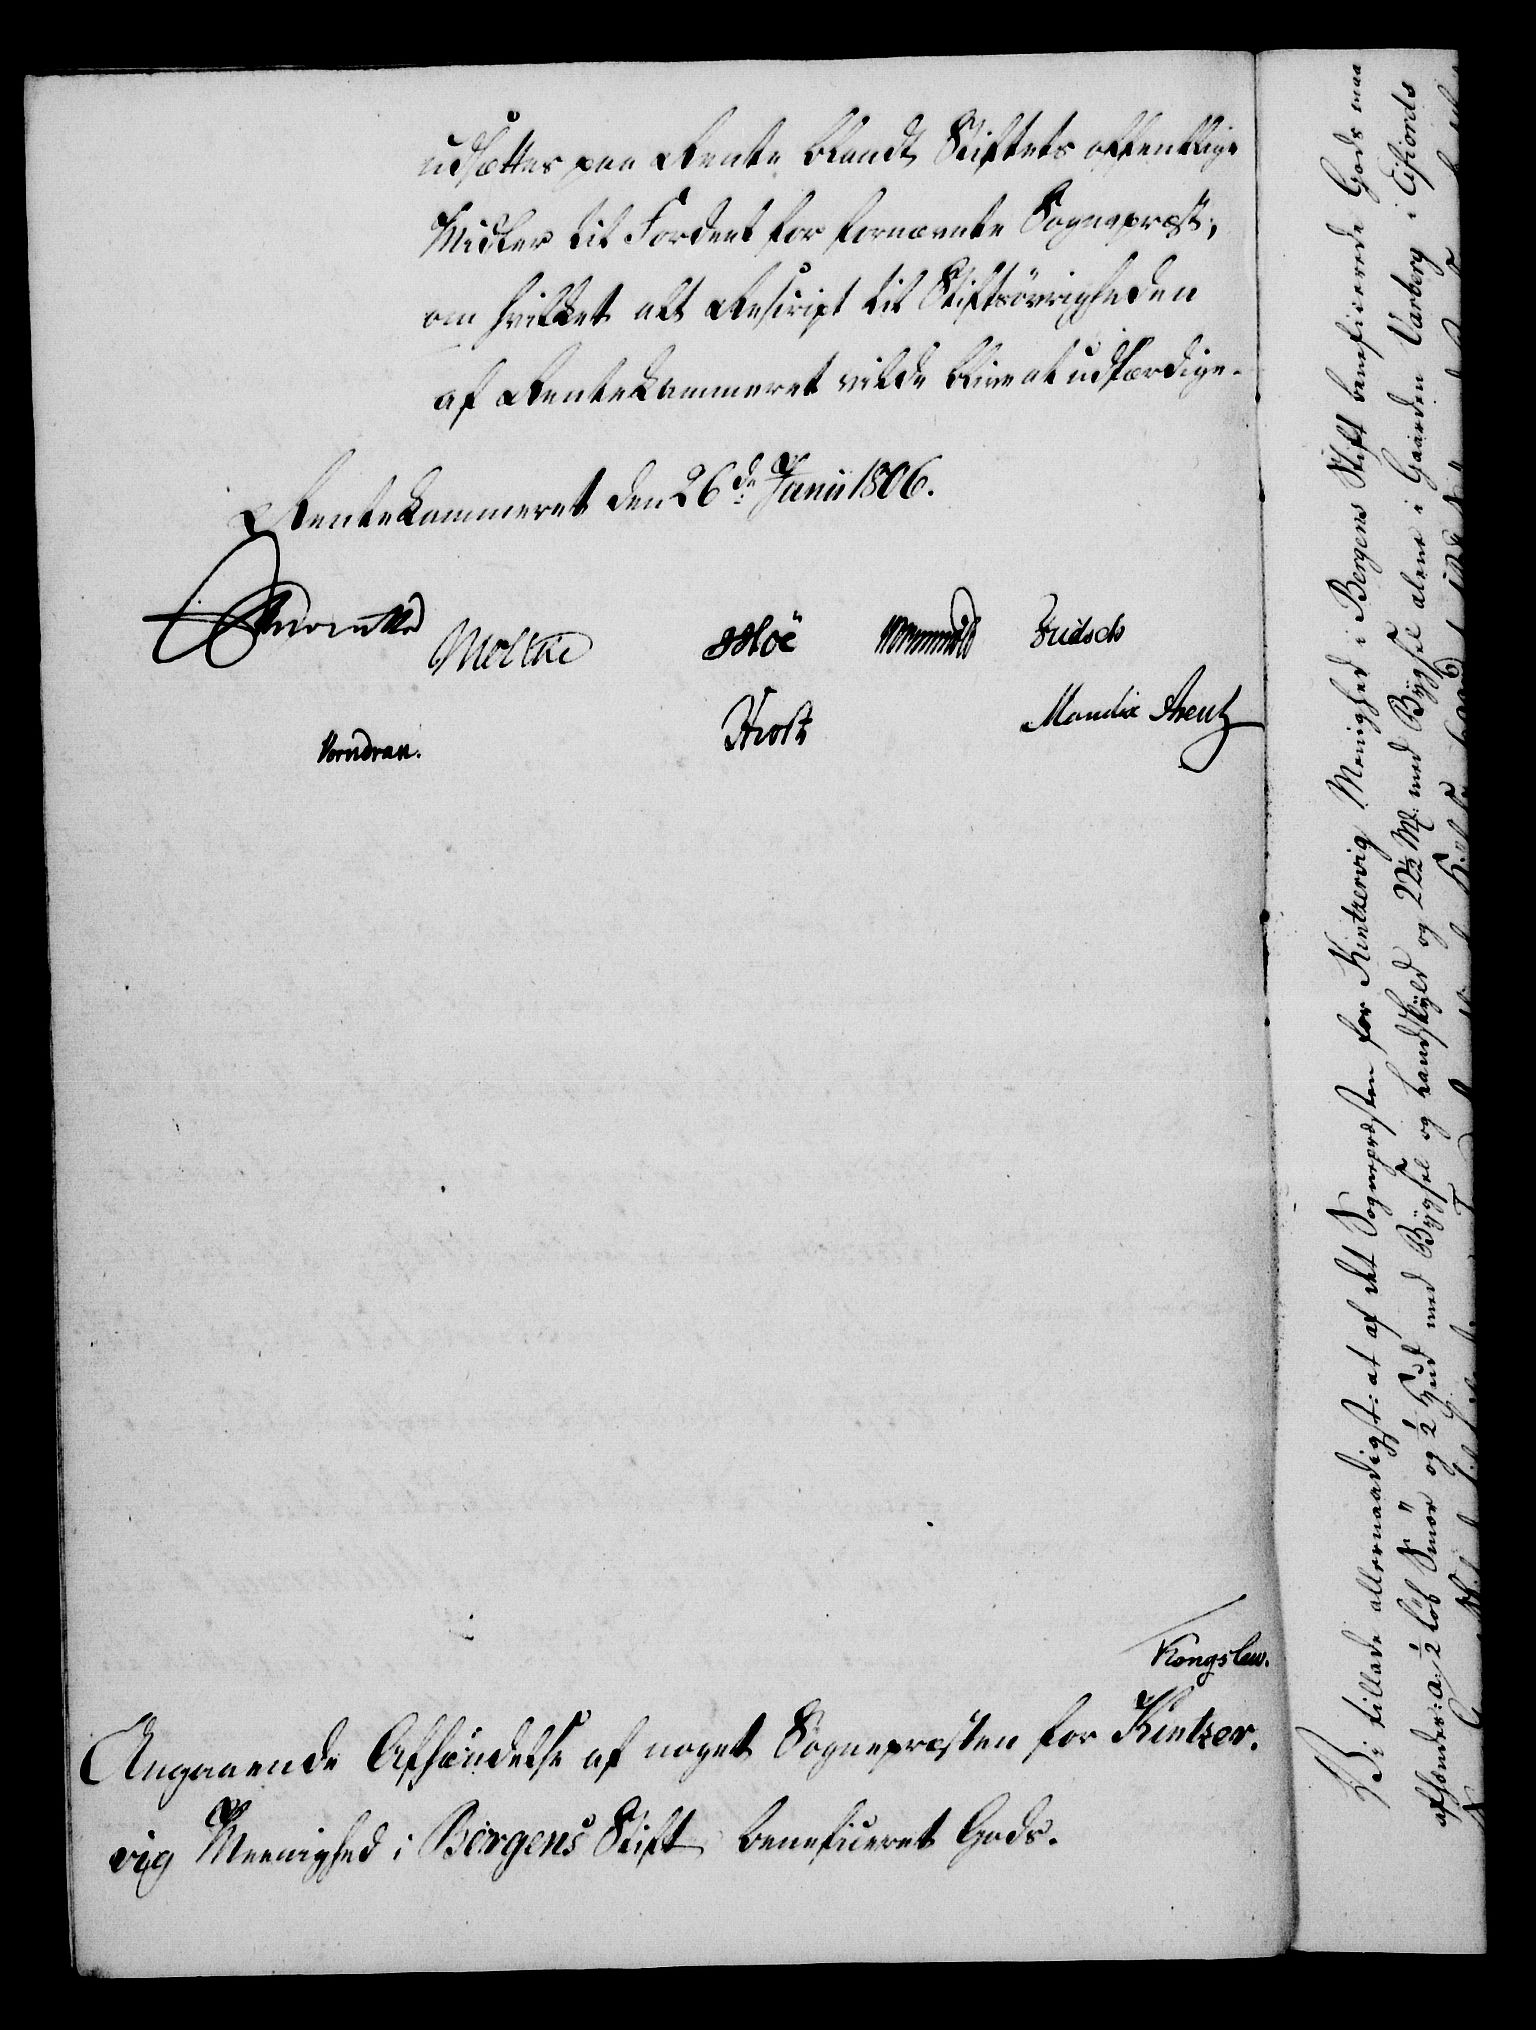 udsættes paa Rente blandt Stiftets offentlige
Midler til Fordeel for fornævnte Sognepræst;
om hvilket alt Rescript til Stiftsövrigheden
af Rentekammeret vilde blive at udfærdige.
Rentekammeret den 26de Junii 1806.
Moltke Hoë Wormskiold Fridsch
Vorndran. Holst Mandix Arentz
Kongslew.
Angaaende Afhændelse af noget Sognepræsten for Kintzer-
vig Meenighed i Bergens Stift beneficeret Gods.
Vi tillade allernaadigst: at af det Sognepræsten for Kintzervig Menighed i Bergens Stift beneficerede Gods maa
afhændes: a, ½ Löb Smör og ½ Hud med Bygsel og Landskyld og 22½ Mk. med Bygsel alene i Gaarden Varberg i Eifiords